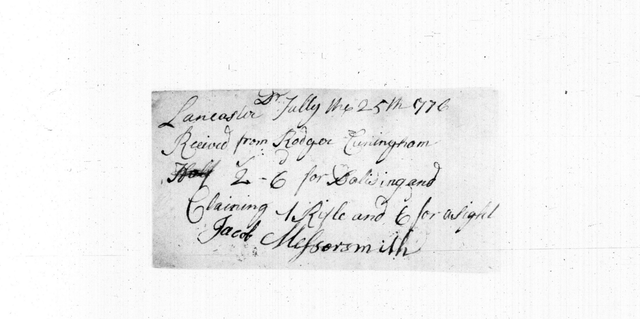 Lancaster Dr Jully the 25th 1776
Receivd from Rodger Cuningham
Half 2 - 6 for Polising and
Claining 1 Rifle and 6 for a sight
Jacob Messersmith